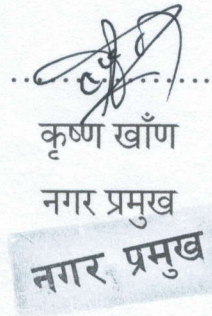 कृष्ण खाँण
नगर प्रमुख
नगर प्रमुख